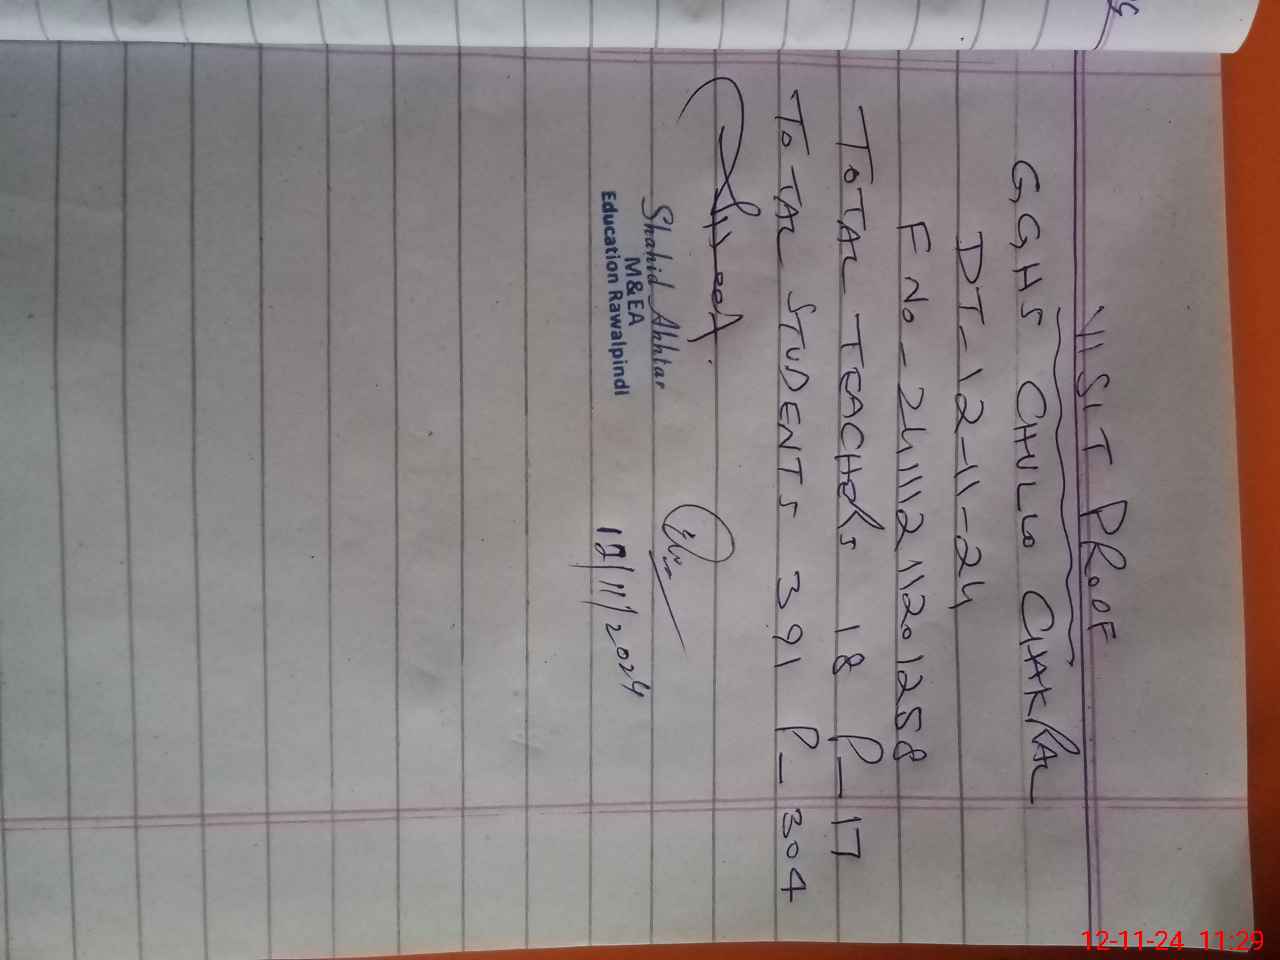 VISIT PROOF
GGHS CHULLO GHAKRAL
DT-12-11-24
F No - 24111211201258
TOTAL TEACHeRs 18 P_17
TOTAL STUDENTS 391 P_304
Shahid Akhtar
M&EA
Education Rawalpindi
12/11/2024
12-11-24 11:29